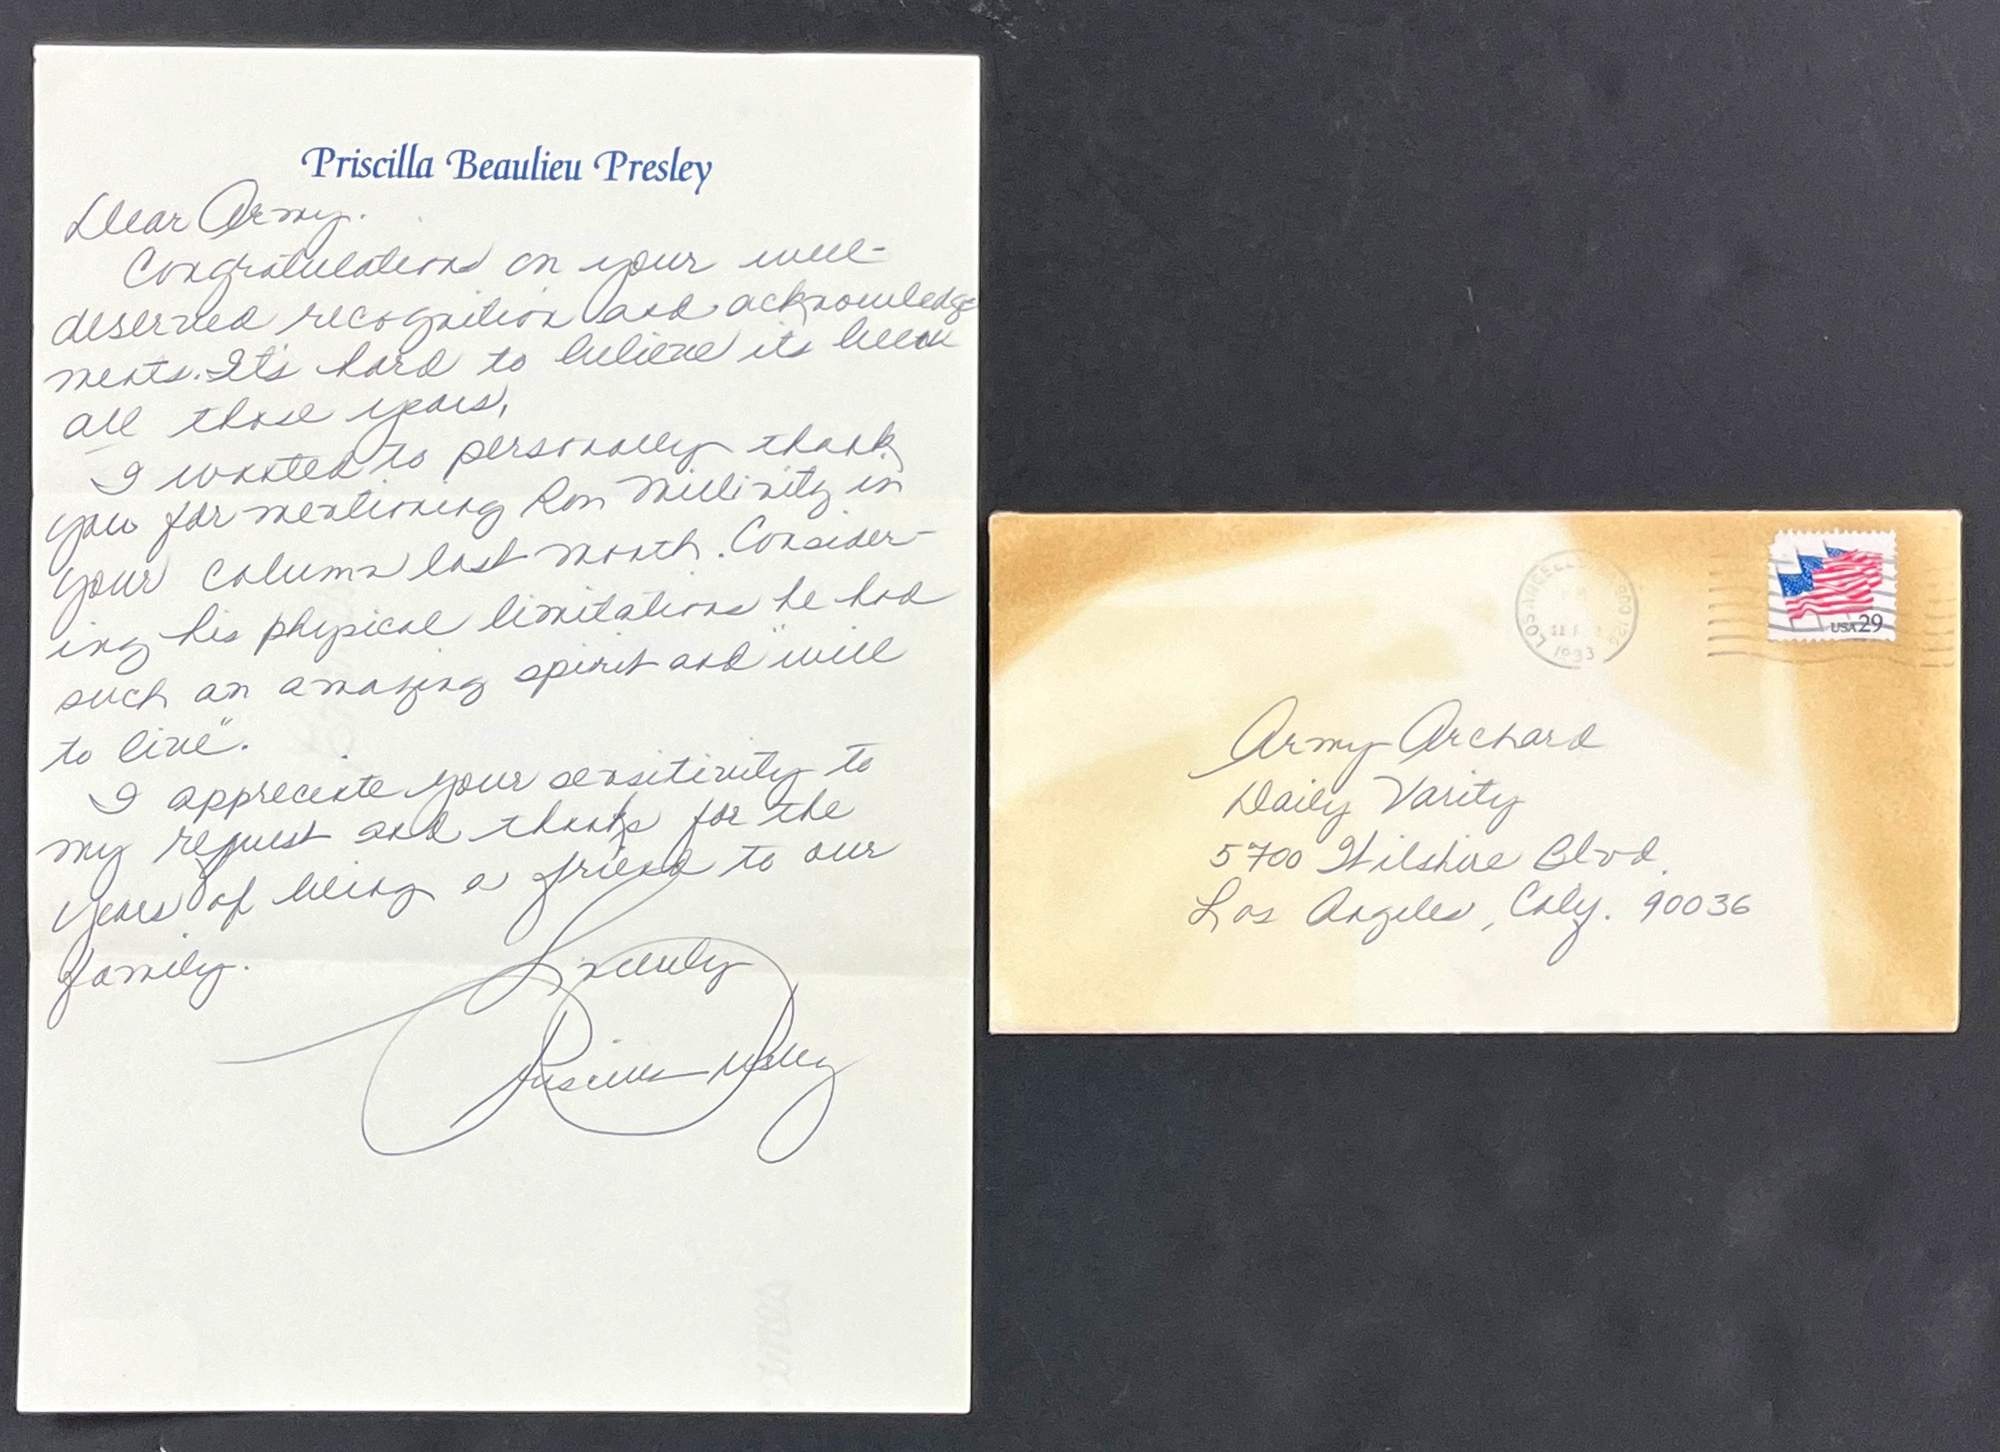 Priscilla Beaulieu Presley
Dear Army.
Congratulations on your well-
deserved recognition and acknowledge
ments. It's hard to believe its been
all those years,
I wanted to personally thank
you for mentioning Ron Milinity in
your column last month. Consider-
ing his physical limitations he had
such an amazing spirit and "will
to live".
I appreciate your sensitivity to
my request and thanks for the
years of being a friend to our
family.
Sincerely
Priscilla Presley
USA 29
LOS ANGELES
1993
Army Archard
Daily Varity
5700 Wilshire Blvd.
Los Angeles, Caly. 90036